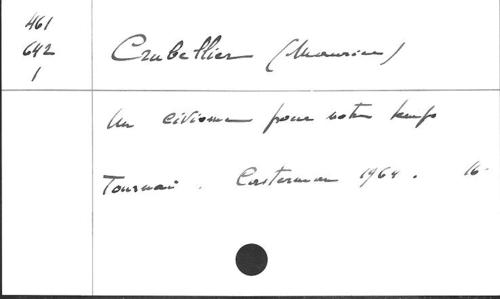 461
642
1
Crubellier (Maurice)
Un civisme pour notre temps
Tournai. Casterman 1964. 16